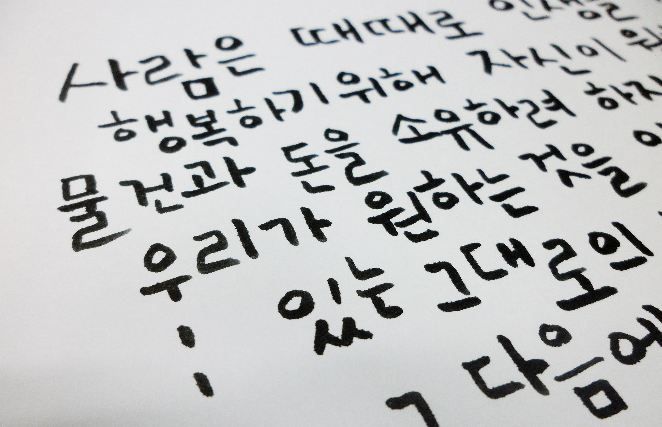 사람은 때때로 인생을
행복하기위해 자신이 원
물건과 돈을 소유하려 하지
우리가 원하는 것을
있는 그대로의
그 다음에